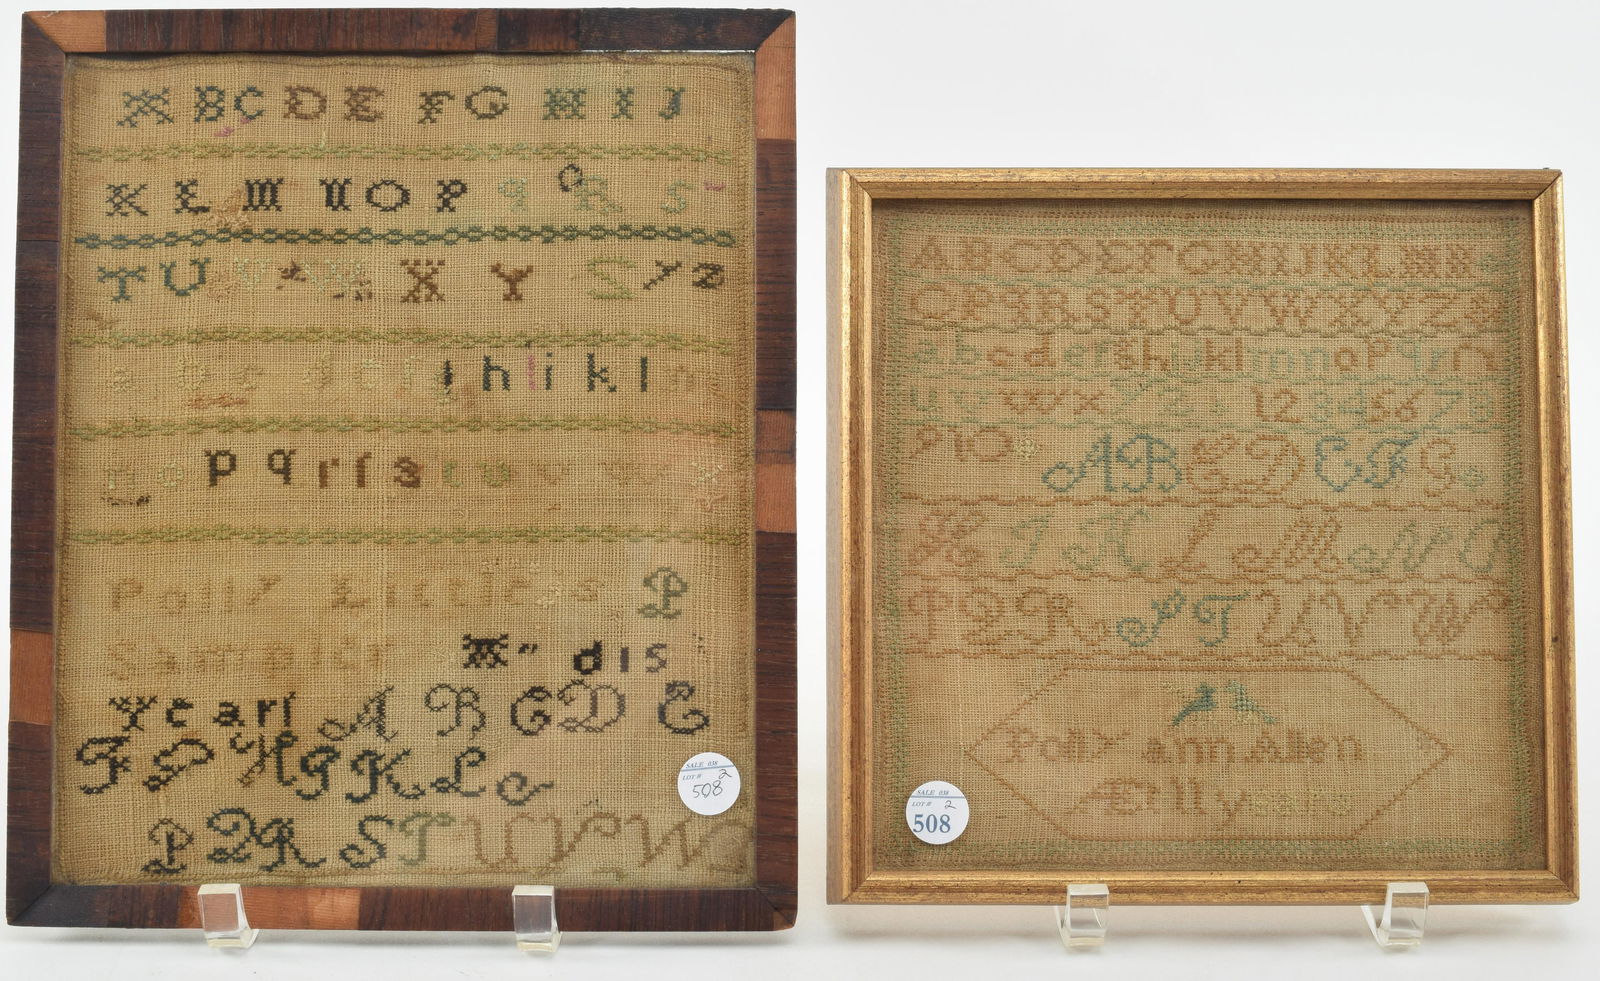 A B C D E F G H I J
K L M N O P q R S
T U V W X Y Z Y Z
h i k l
p q r ſ s t u v w
Polly Little's P
Sampler A" dis
Years A B C D E
F G H I K L
P Q R S T U V W
SALE 038
LOT # 2
508
A B C D E F G H I J K L M N
O P q R S T U V W X Y Z
a b c d e f g h i j k l m n o p q r
u v w x 1 2 3 4 5 6 7 8
9 10 A B C D E F G
H I K L M N O
P Q R S T U V W
Polly ann Allen
SALE 038
LOT # 2
508